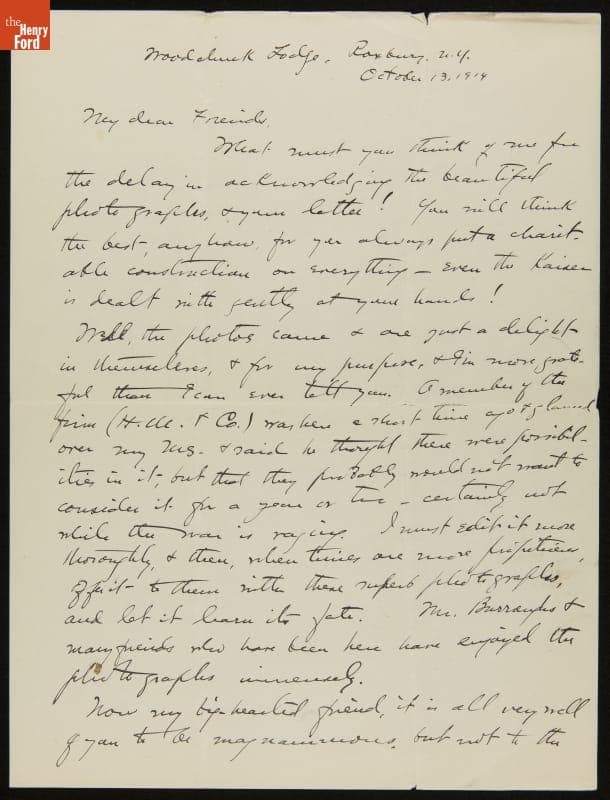 the
Henry
Ford
Woodchuck Lodge, Roxbury, N.Y.
October 13, 1914
My dear Friends,
What must you think of me for
the delay in acknowledging the beautiful
photographs, & your letter! You will think
the best, anyhow, for you always put a charit-
able construction on everything — even the Kaiser
is dealt with gently at your hands!
Well, the photos came & are just a delight
in themselves, & for my purpose, & I'm more grate-
ful than I can ever tell you. A member of the
firm (H. M. & Co.) was here a short time ago & glanced
over my MS. & said he thought there were possibil-
ities in it, but that they probably would not want to
consider it for a year or two — certainly not
while the war is raging. I must edit it more
thoroughly, & then, when times are more propitious,
offer it to them with these superb photographs,
and let it learn its fate. Mr. Burroughs &
many friends who have been here have enjoyed the
photographs immensely.
Now my big-hearted friend, it is all very well
of you to be magnanimous, but not to the